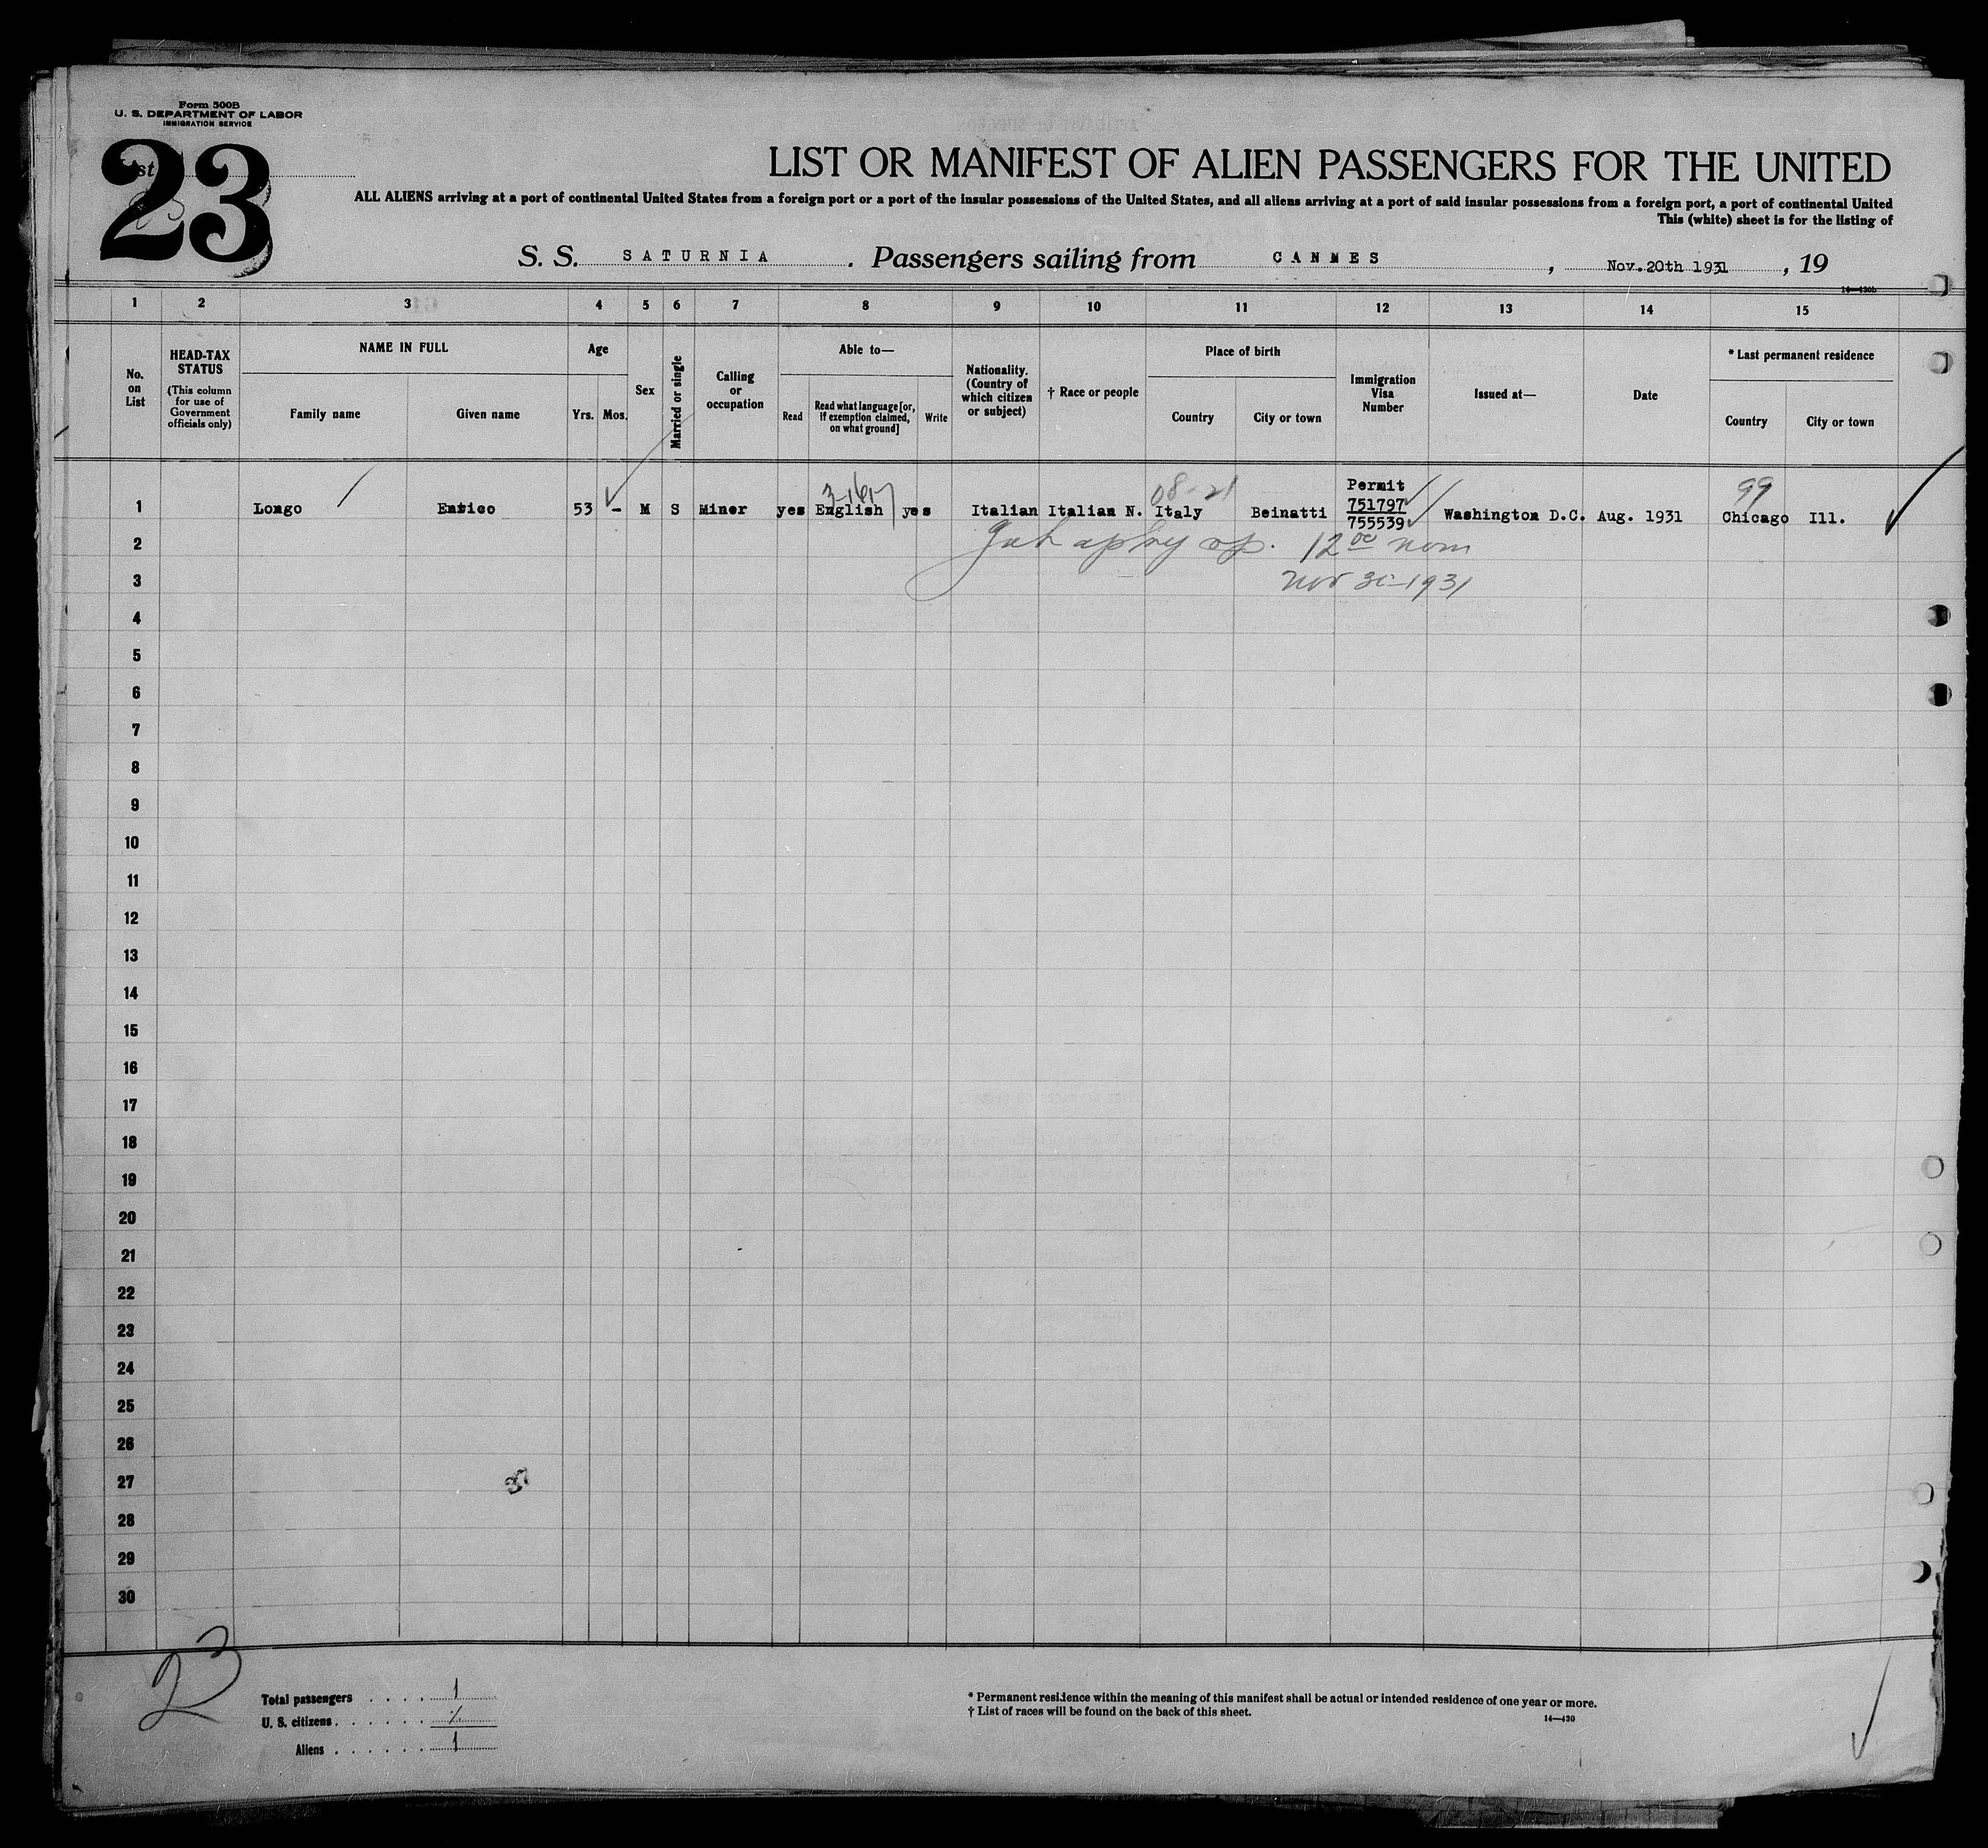 Form 500B
U. S. DEPARTMENT OF LABOR
IMMIGRATION SERVICE
23
LIST OR MANIFEST OF ALIEN PASSENGERS FOR THE UNITED
ALL ALIENS arriving at a port of continental United States from a foreign port or a port of the insular possessions of the United States, and all aliens arriving at a port of said insular possessions from a foreign port, a port of continental United
This (white) sheet is for the listing of
S. S. SATURNIA. Passengers sailing from CANNES, Nov. 20th 1931, 19
14—430b
1 2 3 4 5 6 7 8 9 10 11 12 13 14 15
No. on List
HEAD-TAX STATUS
(This column for use of Government officials only)
NAME IN FULL
Family name Given name
Age
Yrs. Mos.
Sex
Married or single
Calling or occupation
Able to—
Read Read what language [or, if exemption claimed, on what ground] Write
Nationality. (Country of which citizen or subject)
† Race or people
Place of birth
Country City or town
Immigration Visa Number
Issued at—
Date
* Last permanent residence
Country City or town
3-1617 08-21 Permit 99
1 Longo Enrico 53 - M S Miner yes English yes Italian Italian N. Italy Beinatti 751797 755539 Washington D.C. Aug. 1931 Chicago Ill.
2 12 00 noon
3 Nov 30-1931
4
5
6
7
8
9
10
11
12
13
14
15
16
17
18
19
20
21
22
23
24
25
26
27
28
29
30
23
Total passengers . . . . 1
U. S. citizens . . . . . .
Aliens . . . . . . 1
* Permanent residence within the meaning of this manifest shall be actual or intended residence of one year or more.
† List of races will be found on the back of this sheet.
14—430